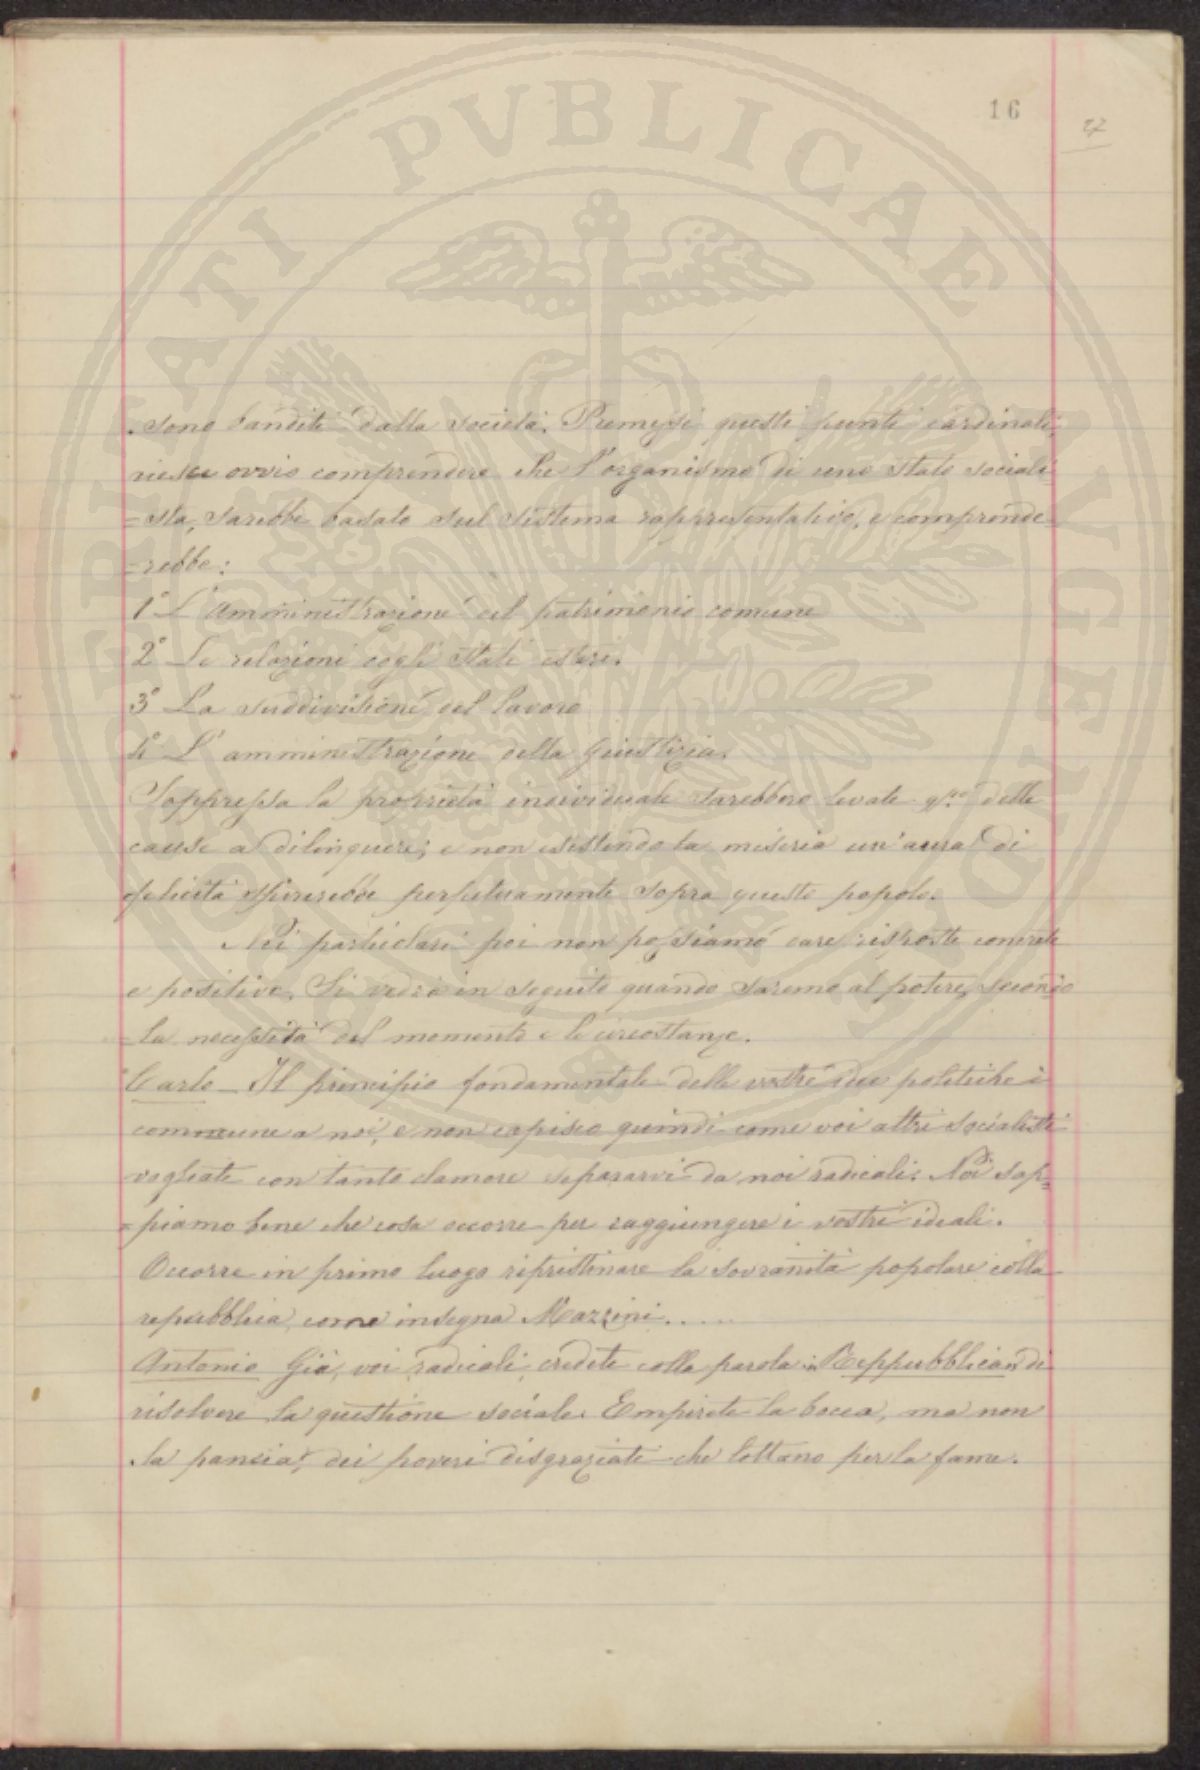 16
27
sono banditi dalla società. Premessi questi punti cardinali,
riesce ovvio comprendere che l'organismo di uno stato sociali
=sta, sarebbe basato sul sistema rappresentativo, e comprende
=rebbe:
1° L'amministrazione del patrimonio comune
2° Le relazioni cogli stati esteri.
3° La suddivisione del lavoro
4° L'amministrazione della giustizia.
Soppressa la proprietà individuale sarebbero levate delle
cause a delinquere; e non esistendo la miseria un'aura di
felicità spirerebbe perpetuamente sopra questo popolo.
Nei particolari poi non possiamo dare risposte concrete
e positive. Si vedrà in seguito quando saremo al potere, secondo
la necessità del momento e le circostanze.
Carlo - Il principio fondamentale delle vostre idee politiche è
commune a noi, e non capisco quindi come voi altri socialisti
vogliate con tanto clamore separarvi da noi radicali. Noi sap=
=piamo bene che cosa occorre per raggiungere i vostri ideali.
Occorre in primo luogo ripristinare la sovranità popolare colla
repubblica, come insegna Mazzini.....
Antonio Già, voi radicali, credete colla parola "Reppubblica" di
risolvere la questione sociale. Empirete la bocca, ma non
la pancia, dei poveri disgraziati che lottano per la fame.
PVBLICAE